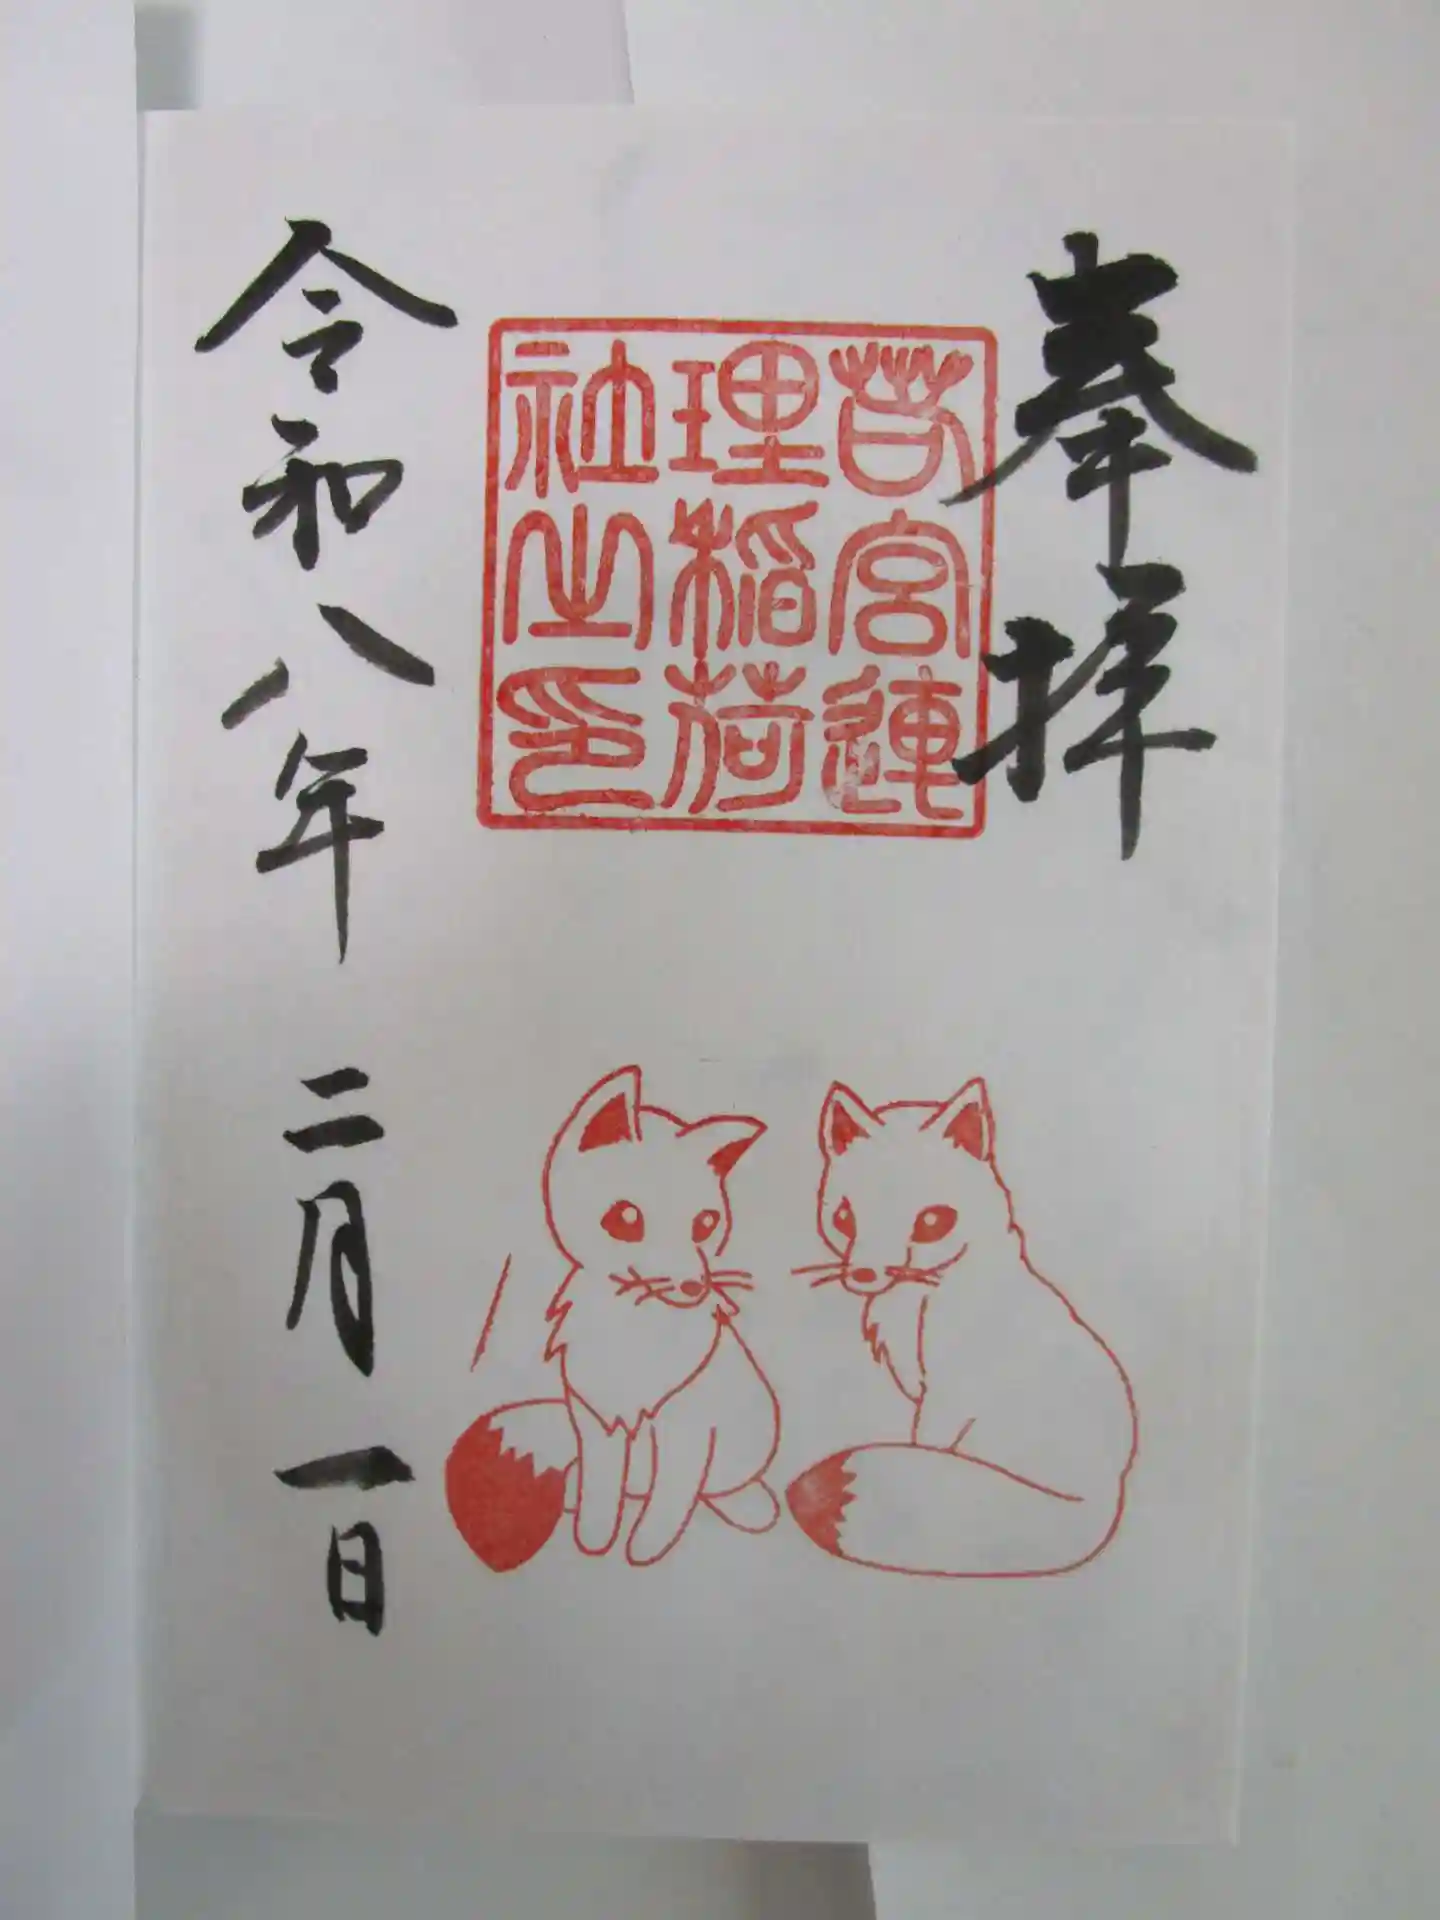 奉拝
若宮連
理稲荷
社之印
令和八年二月一日